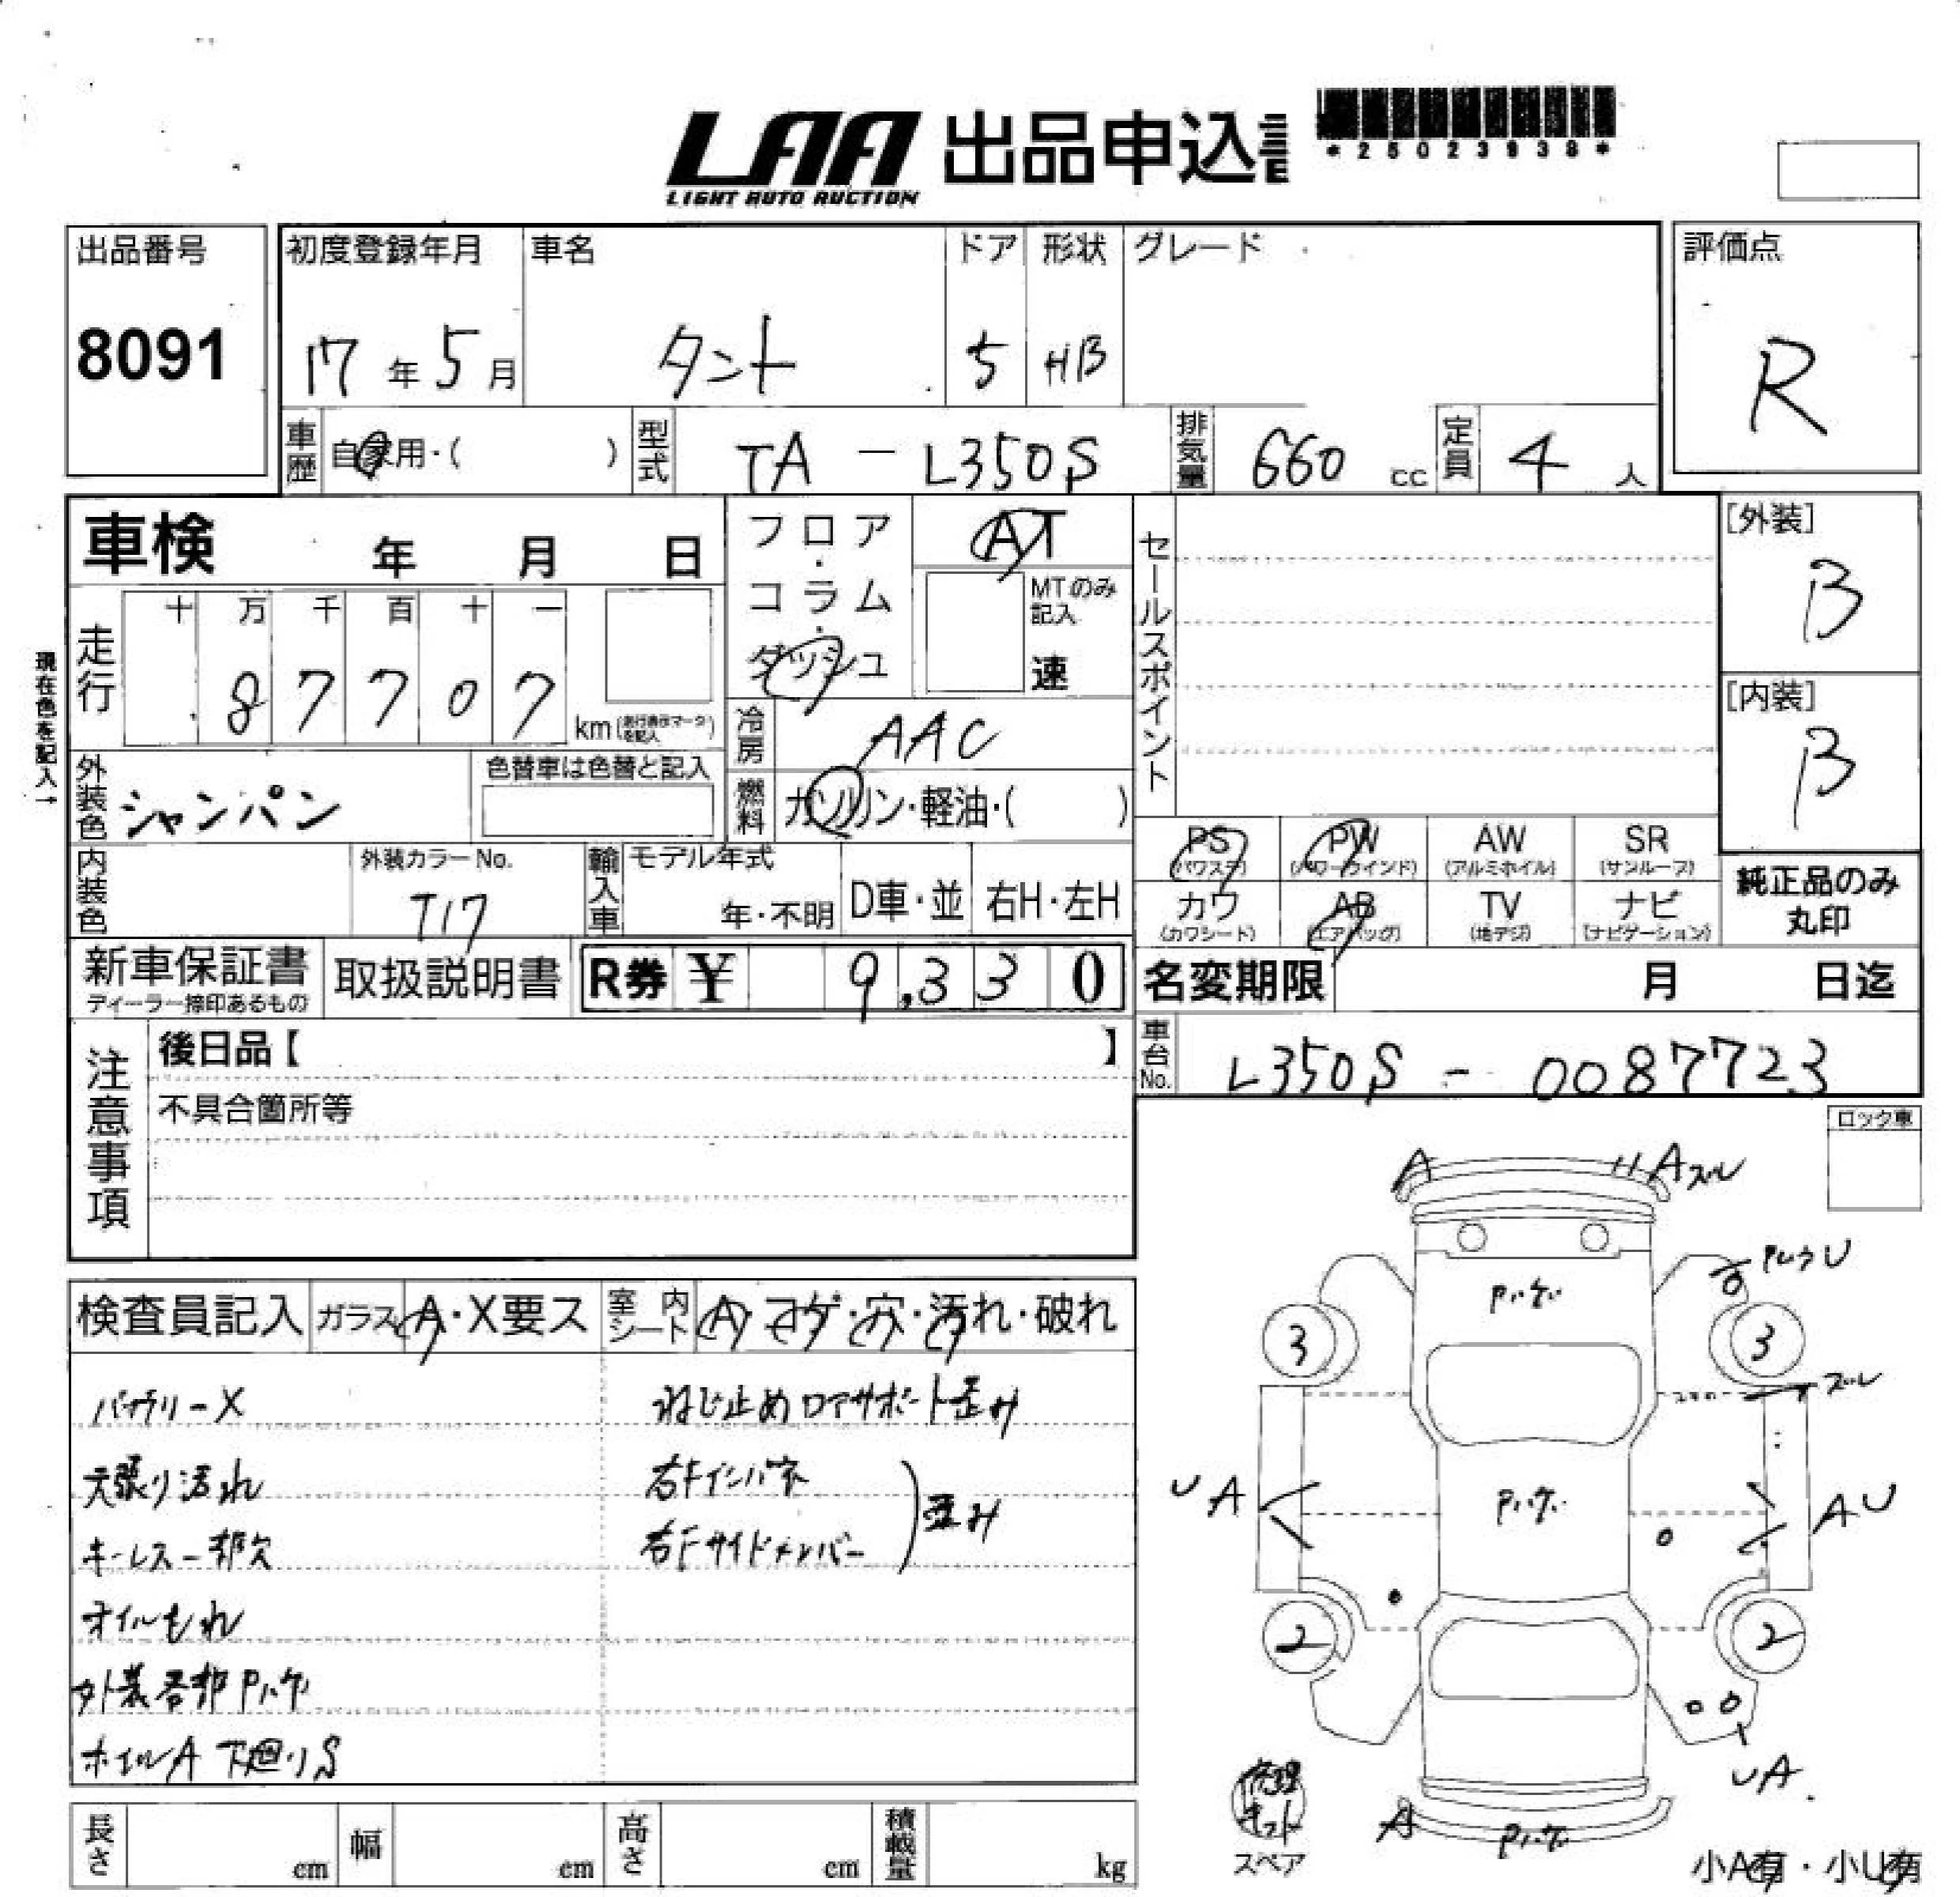 LAA 出品申込書
LIGHT AUTO AUCTION
*25023938*
出品番号
8091
初度登録年月
17年5月
車名
タント
ドア
5
形状
HB
グレード
評価点
R
車歴
自家用・( )
型式
TA - L350S
排気量
660 cc
定員
4人
車検 年 月 日
フロア・コラム・ダッシュ
AT
MTのみ記入
速
セールスポイント
[外装]
B
[内装]
B
現在色を記入→
走行
十 万 千 百 十 一
87707
km(走行表示マークを記入)
冷房
AAC
外装色
シャンパン
色替車は色替と記入
燃料
ガソリン・軽油・( )
PS (パワステ)
PW (パワーウインド)
AW (アルミホイル)
SR (サンルーフ)
カワ (カワシート)
AB (エアバッグ)
TV (地デジ)
ナビ (ナビゲーション)
純正品のみ丸印
内装色
外装カラーNo.
T17
輸入車
モデル年式
年・不明
D車・並
右H・左H
新車保証書
ディーラー捺印あるもの
取扱説明書
R券 ¥ 9,330
名変期限 月 日迄
車台No.
L350S - 0087723
注意事項
後日品【 】
不具合箇所等
ロック車
検査員記入
ガラス A・X要ス
室内シート A・コゲ・穴・汚れ・破れ
バッテリーX
天張り汚れ
キーレス一部欠
オイルもれ
外装各部Pハゲ
ホイルA 下廻りS
ねじ止めロアサポート歪み
右Fインパネ
右Fサイドメンバー
歪み
A
Aズレ
U
Pハゲ
3
3
ズレ
Pハゲ
UA
AU
2
2
UA
A
Pハゲ
修理キット
スペア
小A有・小U有
長さ cm
幅 cm
高さ cm
積載量 kg